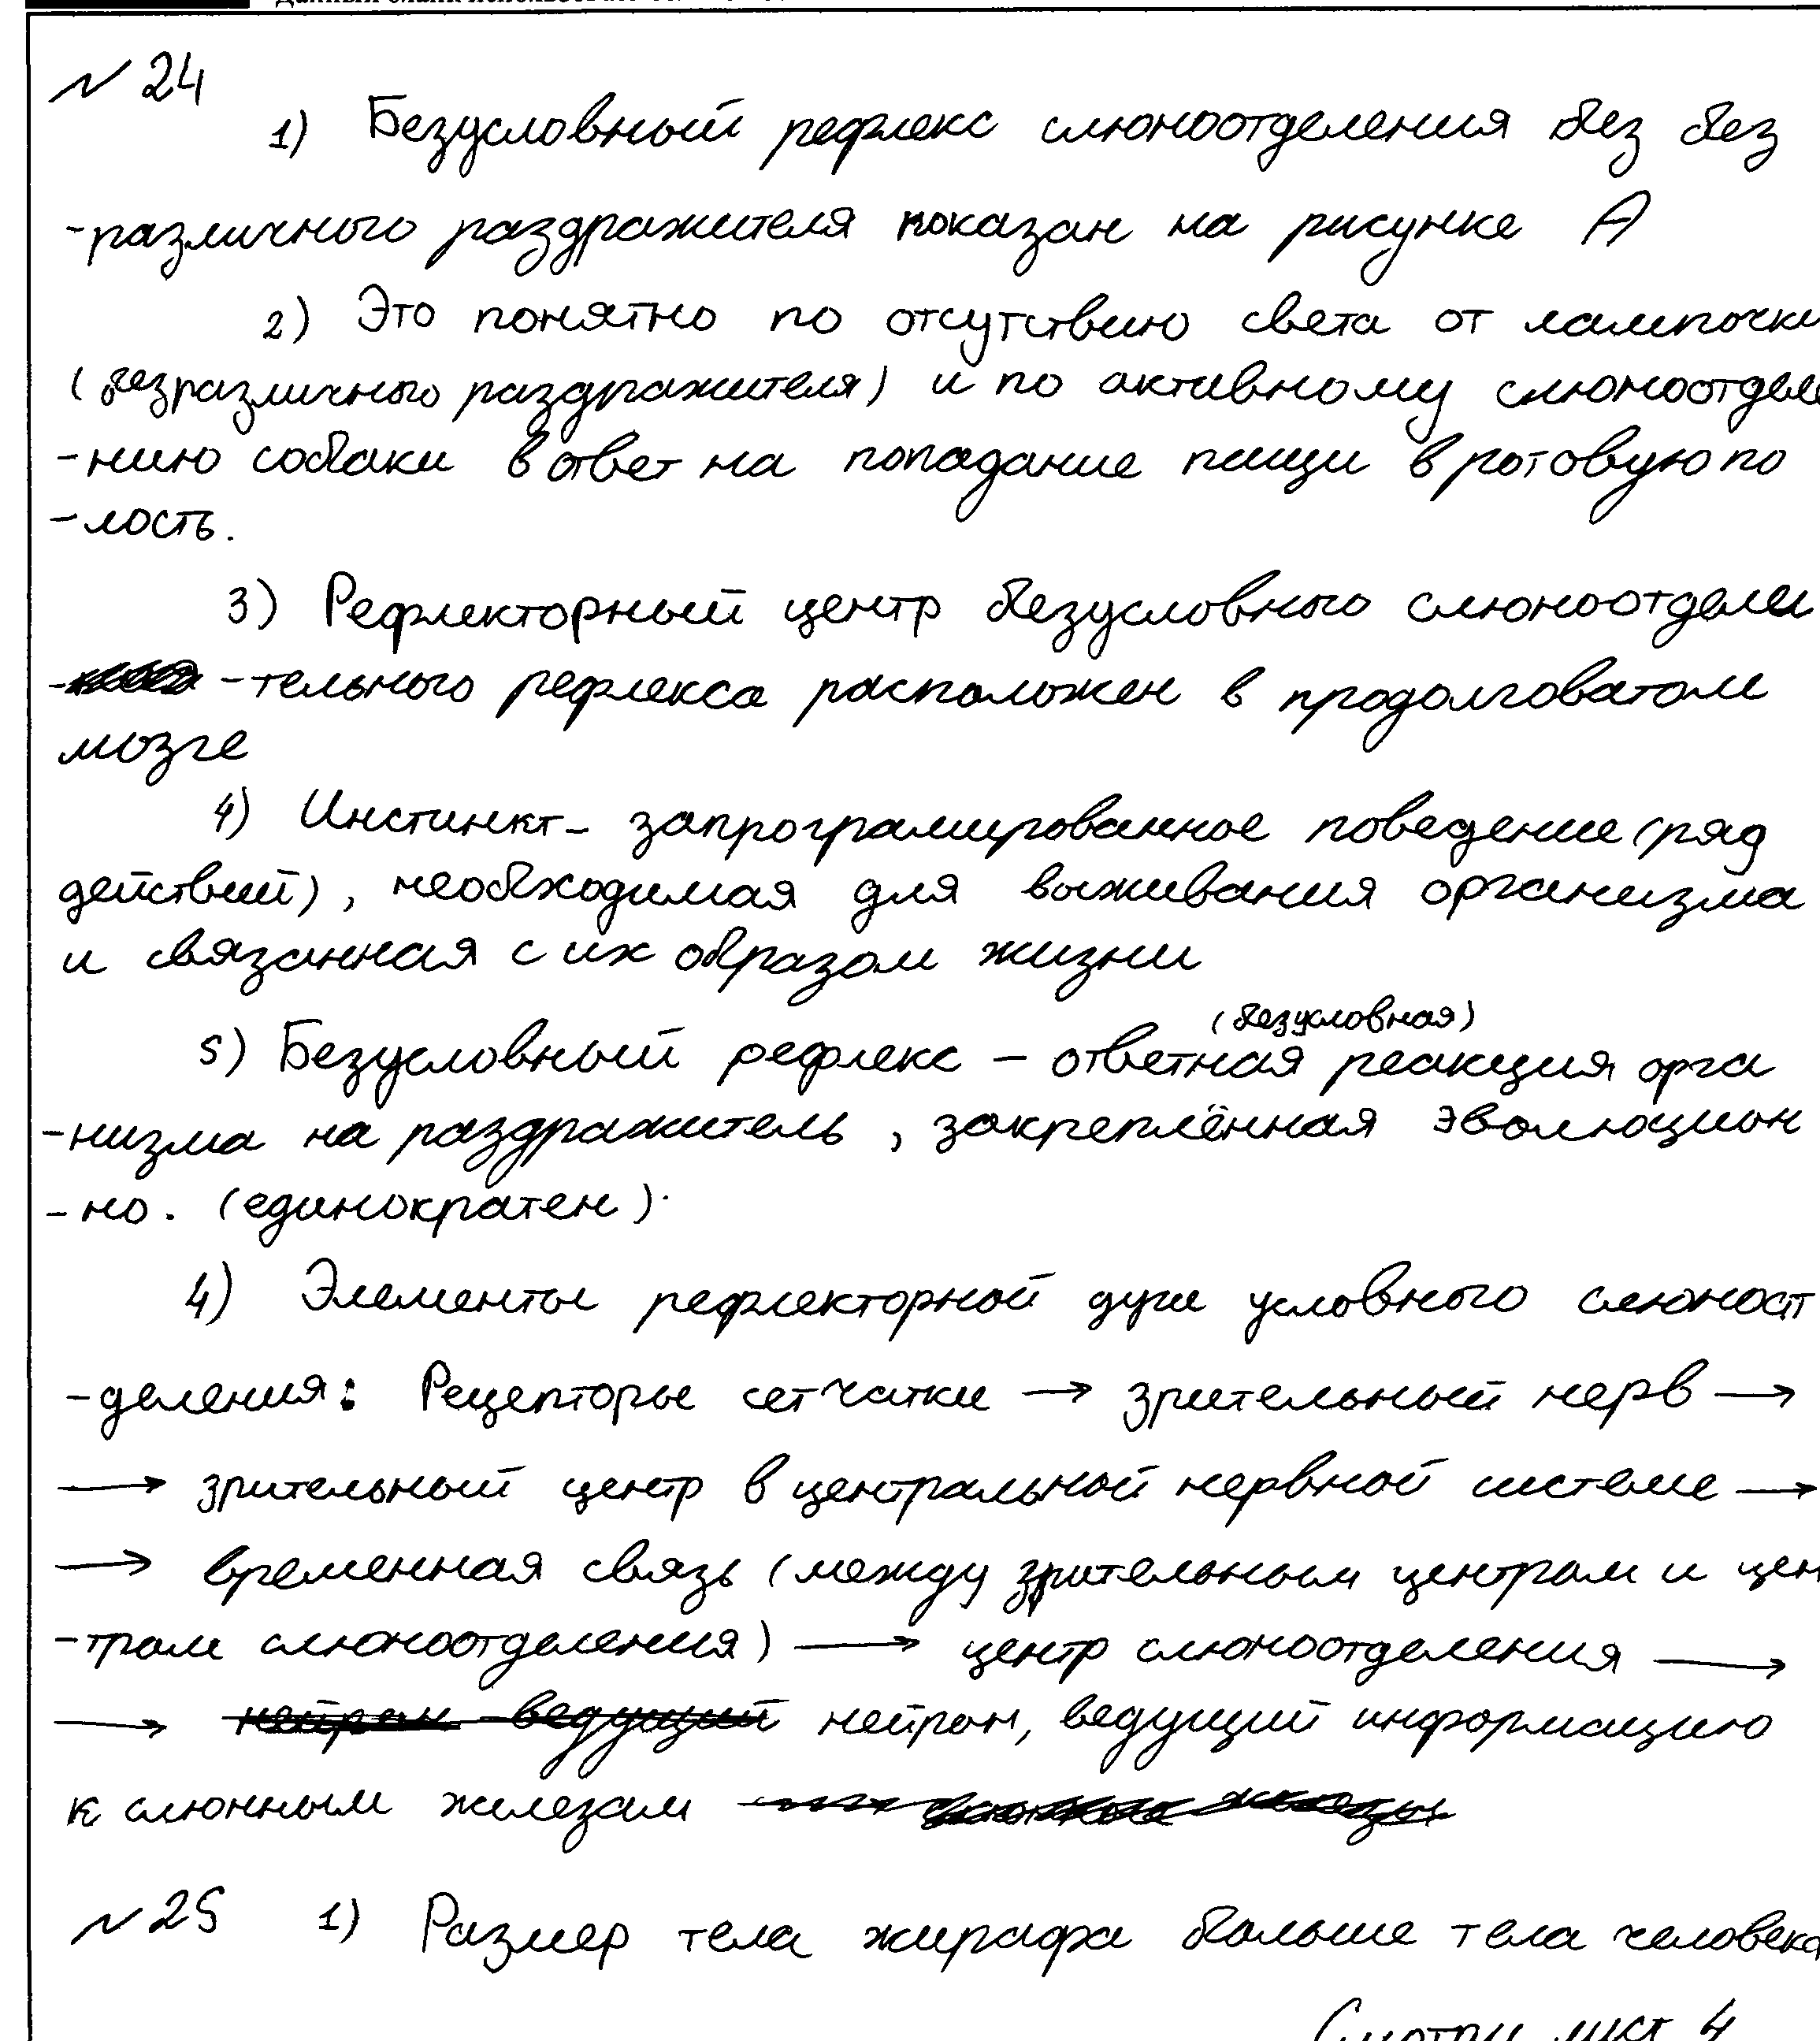 № 24
1) Безусловный рефлекс слюноотделения без без
-различного раздражителя показан на рисунке А
2) Это понятно по отсутствию света от лампочки
(безразличного раздражителя) и по активному слюноотделе
-нию собаки в ответ на попадание пищи в ротовую по
-лость.
3) Рефлекторный центр безусловного слюноотдели
-тельного рефлекса расположен в продолговатом
мозге
4) Инстинкт - запрограмированное поведение (ряд
действий), необходимая для выживания организма
и связанная с их образом жизни
(безусловная)
5) Безусловный рефлекс – ответная реакция орга
-низма на раздражитель, закреплённая эволюцион
-но. (единократен).
4) Элементы рефлекторной дуги условного слюноот
-деления: Рецепторы сетчатки → зрительный нерв →
→ зрительный центр в центральной нервной системе →
→ временная связь (между зрительным центром и цен
-тром слюноотделения) → центр слюноотделения →
→ нейрон, ведущий информацию
к слюнным железам
№ 25 1) Размер тела жирафа больше тела человека
Смотри лист 4